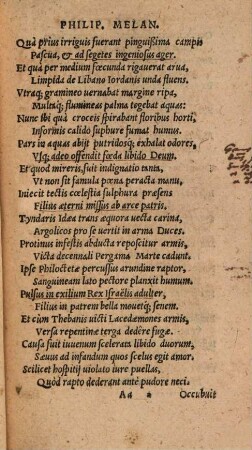 PHILIP. MELAN.
Quà prius irriguis fuerant pinguißima campis
Pascua, & ad segetes ingeniosus ager.
Et quà per medium fœcunda rigauerat arua,
Limpida de Libano Iordanis unda fluens.
Vtraq; gramineo uernabat margine ripa,
Multaq; flumineas palma tegebat aquas:
Nunc ibi quà croceis spirabant floribus horti,
Informis calido sulphure fumat humus.
Pars in aquas abijt putridosq; exhalat odores,
Vsq; adeo offendit fœda libido Deum.
Et quod mireris, fuit indignatio tanta,
Vt non sit famula pœna peracta manu,
Iniecit tectis cœlestia sulphura præsens
Filius æterni missus ab arce patris.
Tyndaris Idæa trans æquora uecta carina,
Argolicos pro se uertit in arma Duces.
Protinus infestis abducta reposcitur armis,
Victa decennali Pergama Marte cadunt.
Ipse Philoctetæ percussus arundine raptor,
Sanguineam lato pectore planxit humum.
Pulsus in exilium Rex Israëlis adulter,
Filius in patrem bella mouetq; senem.
Et cùm Thebanis uicti Lacedæmones armis,
Versa repentinæ terga dedêre fugæ.
Causa fuit iuuenum scelerata libido duorum,
Sæuus ad infandum quos scelus egit amor.
Scilicet hospitij uiolato iure puellas,
Quòd rapto dederant antè pudore neci.
Aa
Occubuit